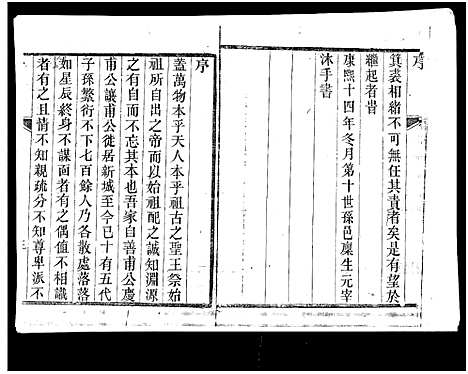 序
箕裘相紹不可無任其責者矣是有望於
繼起者旹
康熙十四年冬月第十世孫邑廩生元宰
沐手書
序
蓋萬物本乎天人本乎祖古之聖王祭始
祖所自出之帝而以始祖配之誠知淵源
之有自而不忘其本也吾家自善甫公慶
甫公讓甫公徙居新城至今已十有五代
子孫繁衍不下七百餘人乃各散處落落
如星辰終身不謀面者有之偶值不相識
者有之且情不知親疏分不知尊卑派不